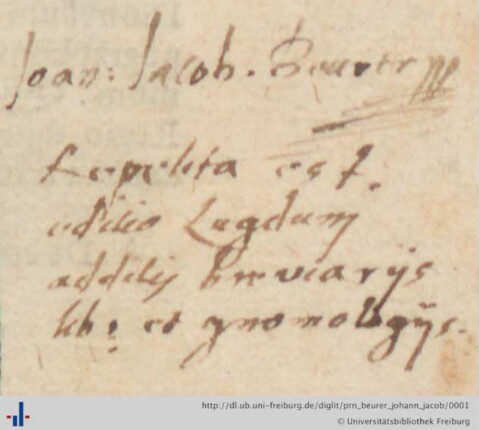 Joan: Jacob. Beurer
Repetita est
editio Lugduni
additis breviarijs
lib: et gnomologijs.
http://dl.ub.uni-freiburg.de/diglit/prn_beurer_johann_jacob/0001
© Universitätsbibliothek Freiburg